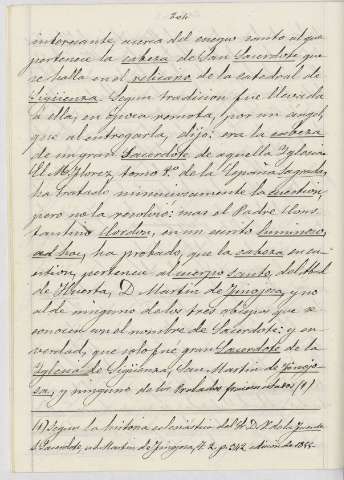 204
interesante, acerca del cuerpo santo al que
pertenece la cabeza de San Sacerdote que
se halla en el relicario de la catedral de
Sigüenza. Segun tradicion fue llevada
á ella, en época remota, por un ángel,
que al entregarla, dijo: era la cabeza
de un gran Sacerdote de aquella Yglesia.
El M. Florez, tomo 8º de la España Sagrada,
ha tratado minuciosamente la cuestion,
pero no la resolvió: mas el Padre Cons-
tantino Cordon, en un escrito luminoso,
ad hoc, ha probado, que la cabeza en cu-
estion, pertenece al cuerpo santo, del Abad
de Huerta, D. Martin de Finojosa, y no
al de ninguno de los tres obispos que se
conocen con el nombre de Sacerdote: y en
verdad, que solo fué gran Sacerdote de la
Yglesia de Sigüenza, San Martin de Finojo-
sa, y ninguno de los Prelados (1)
(1) Segun la historia eclesiástica del D. V. de la Fuente
S. Sacerdote, es S. Martin de Finojosa, T. 2. p. 242, edicion de 1855.